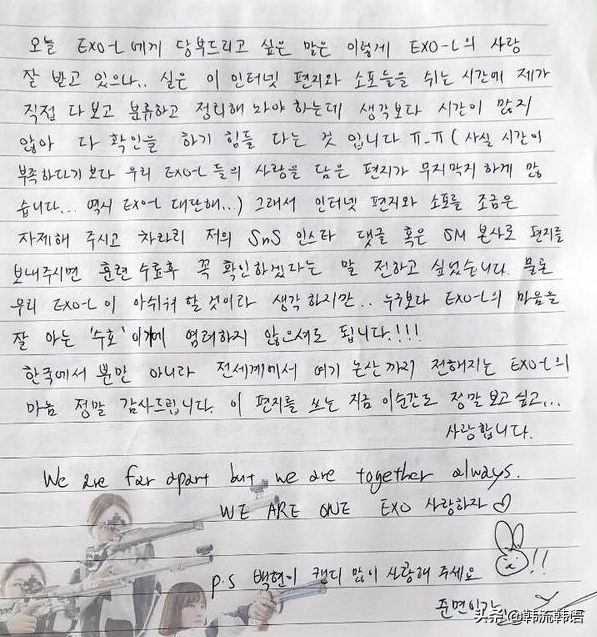 오늘 EXO-L 에게 당부드리고 싶은 말은 이렇게 EXO-L의 사랑
잘 받고 있으나.. 실은 이 인터넷 편지와 소포들을 쉬는 시간에 제가
직접 다 보고 분류하고 정리해 놔야 하는데 생각보다 시간이 많지
않아 다 확인을 하기 힘들 다는 것 입니다 ㅠ_ㅠ ( 사실 시간이
부족하다기 보다 우리 EXO-L 들의 사랑을 담은 편지가 무지막지 하게 많
습니다... 역시 EXO-L 대단해...) 그래서 인터넷 편지와 소포를 조금은
자제해 주시고 차라리 저의 SnS 인스타 댓글 혹은 SM 본사로 편지를
보내주시면 훈련 수료후 꼭 확인하겠다는 말 전하고 싶었습니다. 물론
우리 EXO-L이 아쉬워 할 것이라 생각 하지만.. 누구보다 EXO-L의 마음을
잘 아는 '수호' 이기에 염려하지 않으셔도 됩니다.!!!
한국에서 뿐만 아니라 전세계에서 여기 논산 까지 전해지는 EXO-L의
마음 정말 감사드립니다. 이 편지를 쓰는 지금 이순간도 정말 보고 싶고...
사랑합니다.
We are far apart but we are together always.
WE ARE ONE EXO 사랑하자 ♡
!!
p.s 백현이 캔디 많이 사랑해 주세요
준면이가
头条@韩流韩语